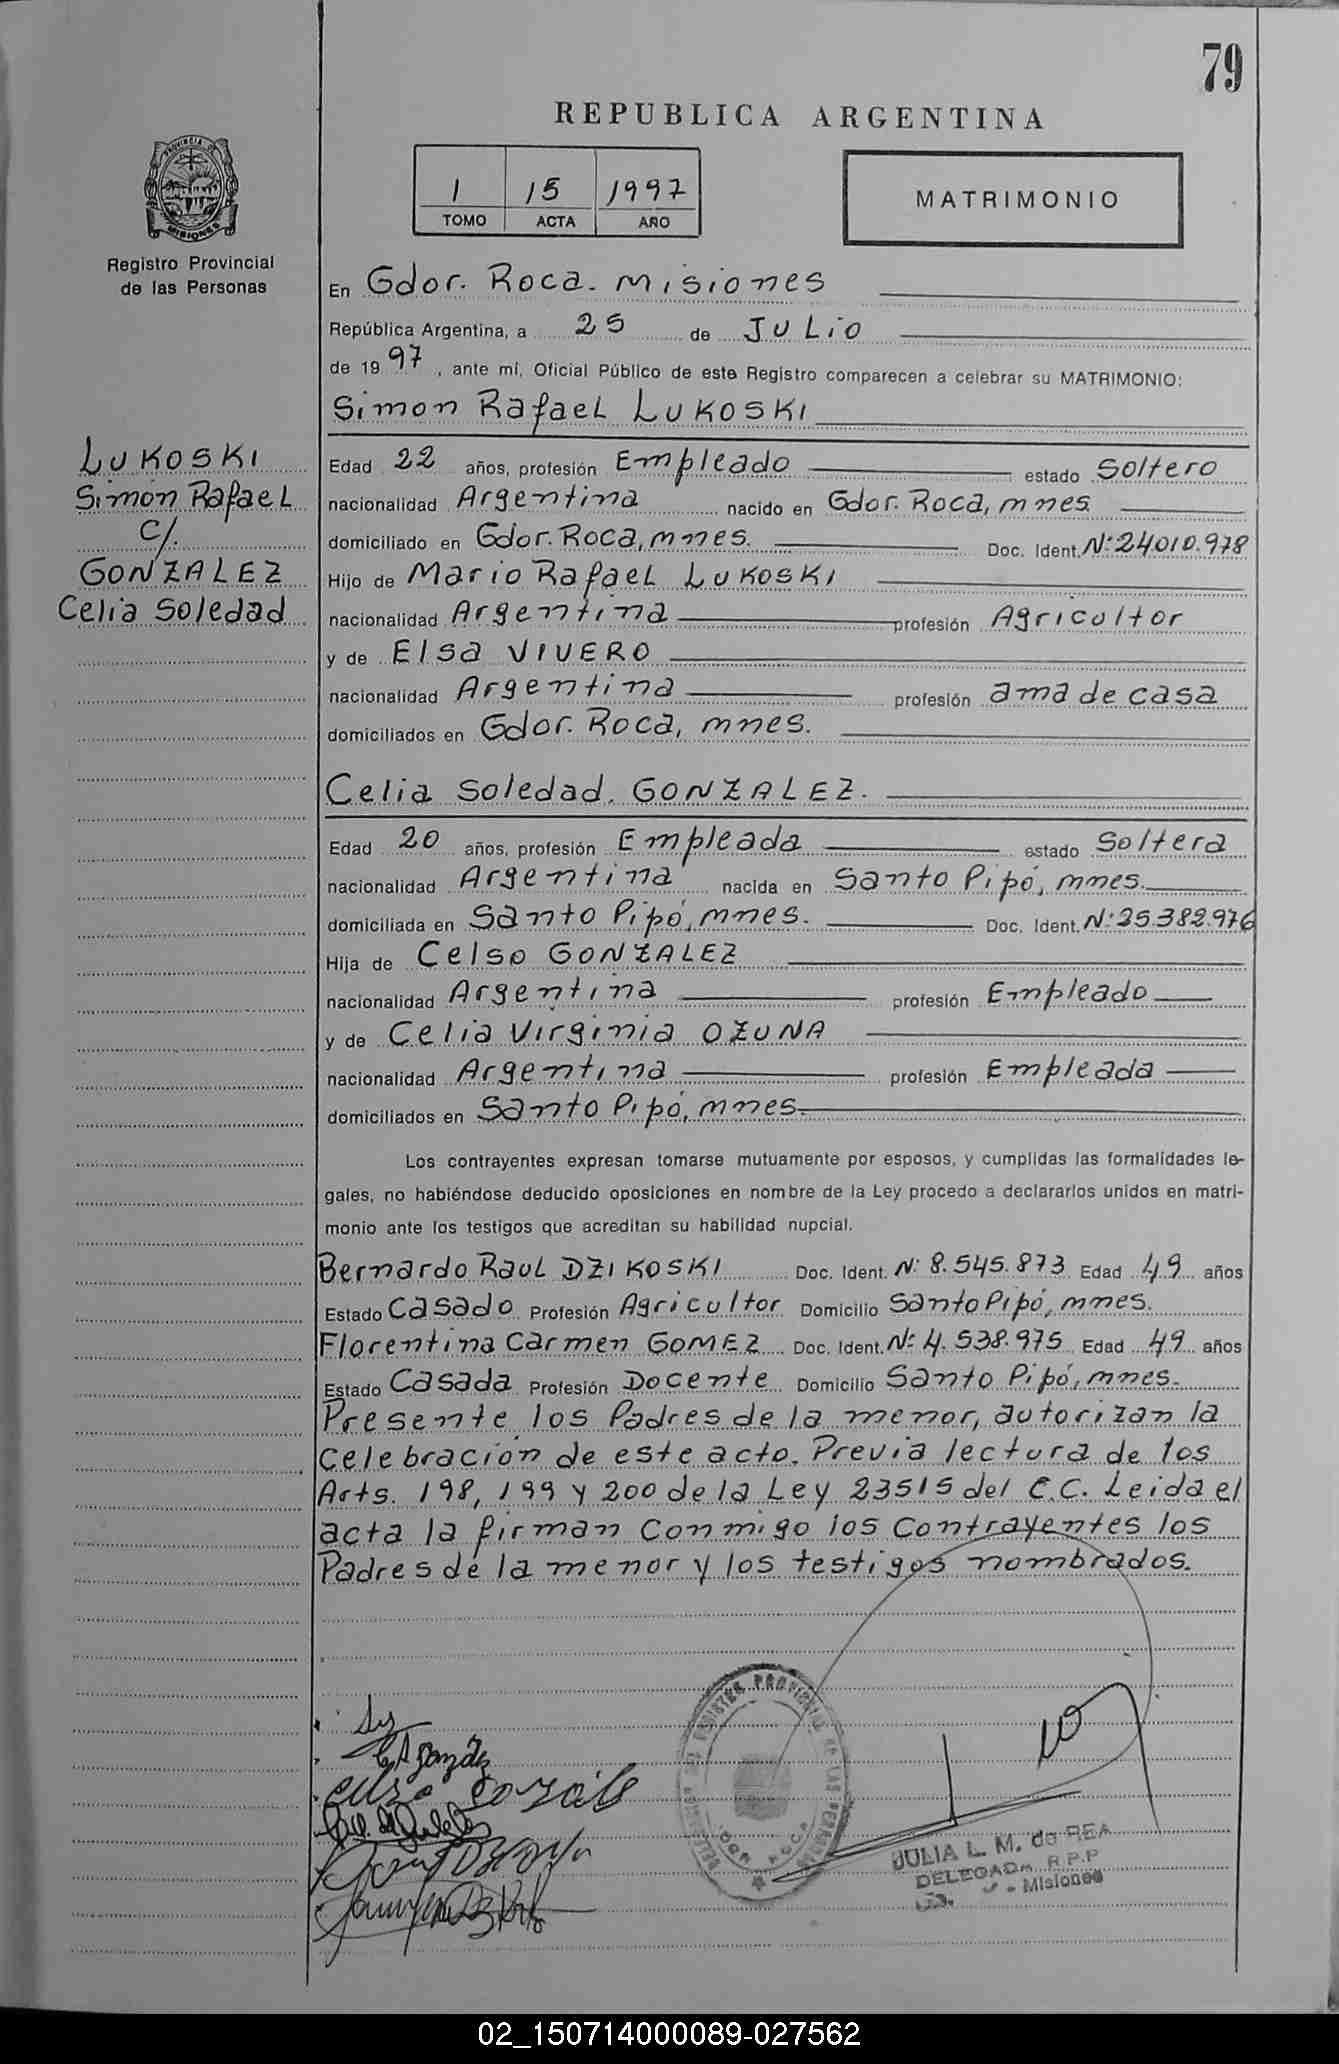 79
REPUBLICA ARGENTINA
1 15 1997
TOMO ACTA AÑO
MATRIMONIO
PROVINCIA DE
MISIONES
Registro Provincial
de las Personas
En Gdor. Roca. Misiones
República Argentina, a 25 de JULIO
de 1997, ante mí, Oficial Público de este Registro comparecen a celebrar su MATRIMONIO:
Simon Rafael LUKOSKI
LUKOSKI
Simon Rafael
C/.
GONZALEZ
Celia Soledad
Edad 22 años, profesión Empleado estado Soltero
nacionalidad Argentina nacido en Gdor. Roca, mnes
domiciliado en Gdor. Roca, mnes. Doc. Ident. Nº 24.010.978
Hijo de Mario Rafael LUKOSKI
nacionalidad Argentina profesión Agricultor
y de Elsa VIVERO
nacionalidad Argentina profesión ama de casa
domiciliados en Gdor. Roca, mnes.
Celia Soledad. GONZALEZ.
Edad 20 años, profesión Empleada estado Soltera
nacionalidad Argentina nacida en Santo Pipó, mnes.
domiciliada en Santo Pipó, mnes. Doc. Ident. Nº 25.382.976
Hija de Celso GONZALEZ
nacionalidad Argentina profesión Empleado
y de Celia Virginia OZUNA
nacionalidad Argentina profesión Empleada
domiciliados en Santo Pipó, mnes.
Los contrayentes expresan tomarse mutuamente por esposos, y cumplidas las formalidades le-
gales, no habiéndose deducido oposiciones en nombre de la Ley procedo a declararlos unidos en matri-
monio ante los testigos que acreditan su habilidad nupcial.
Bernardo Raul DZIKOSKI Doc. Ident. Nº 8.545.873 Edad 49 años
Estado Casado Profesión Agricultor Domicilio Santo Pipó, mnes.
Florentina Carmen GOMEZ Doc. Ident. Nº 4.538.975 Edad 49 años
Estado Casada Profesión Docente Domicilio Santo Pipó, mnes.
Presente los Padres de la menor, autorizan la
Celebración de este acto. Previa lectura de los
Arts. 198, 199 y 200 de la Ley 23515 del C.C. Leida el
acta la firman Conmigo los Contrayentes los
Padres de la menor y los testigos nombrados.
JULIA L. M. de REA
DELEGADA R.P.P
Misiones
02_150714000089-027562